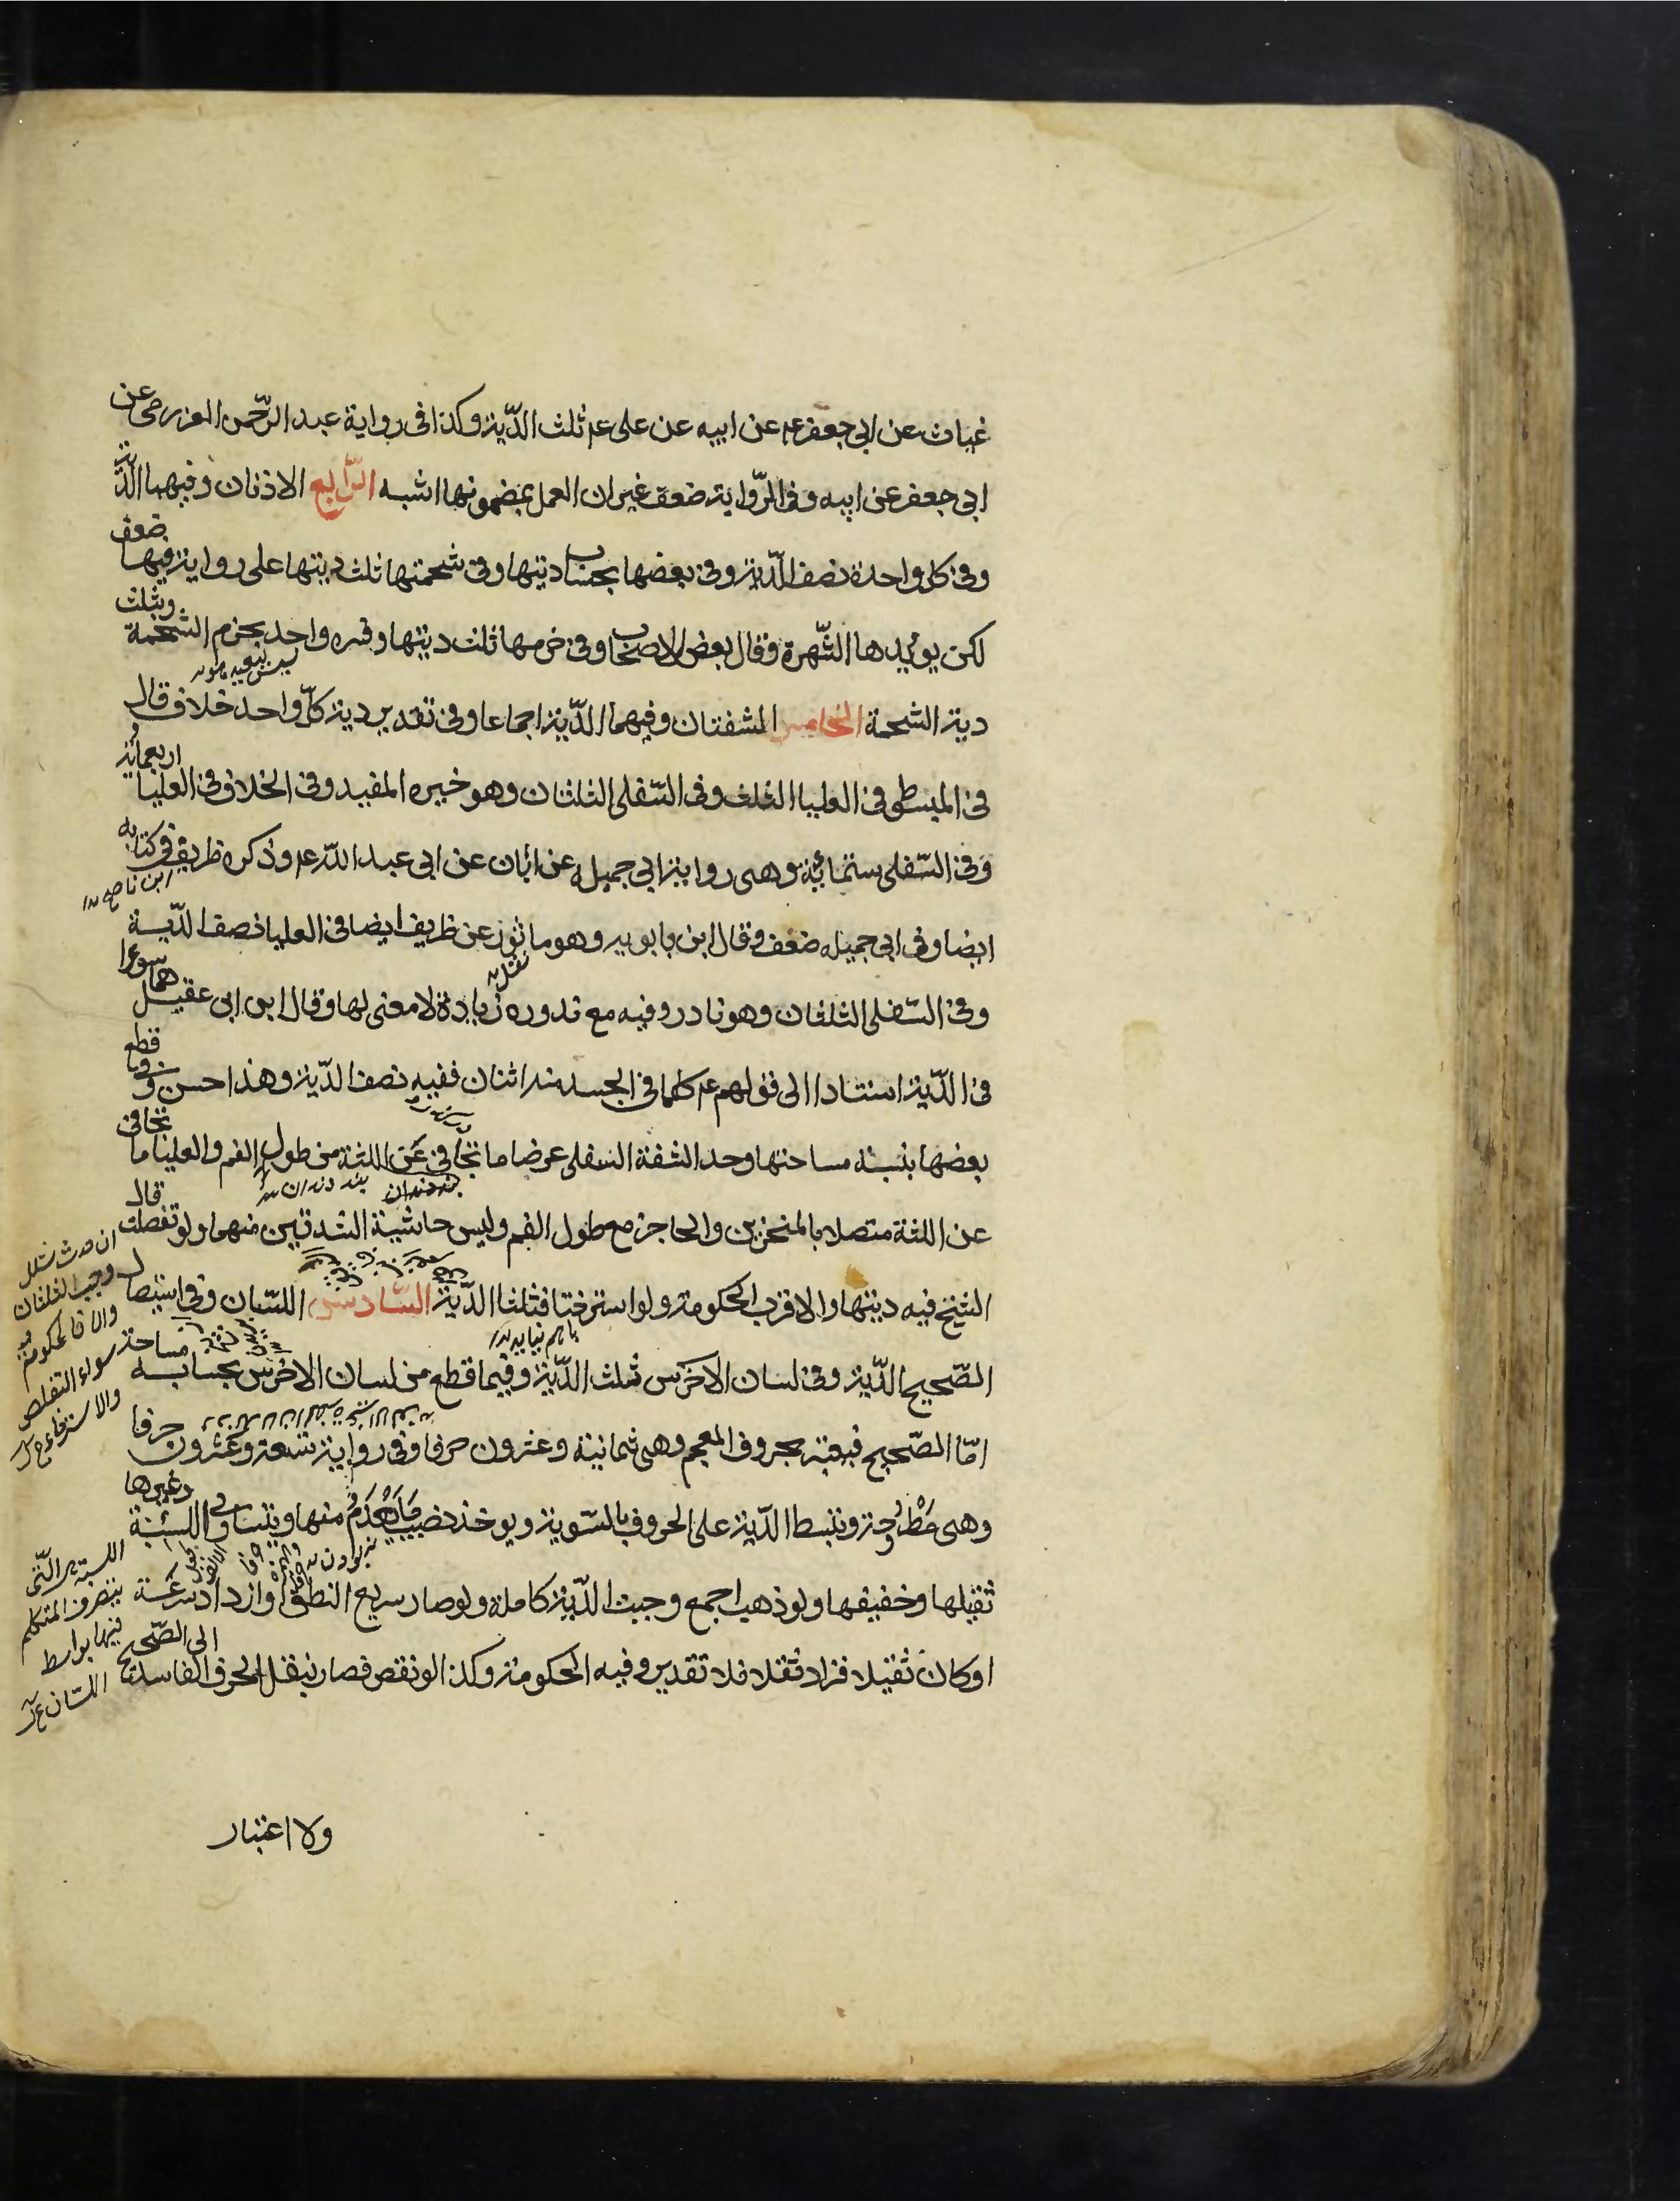 غياث عن ابي جعفر عم عن ابيه عن علي عم ثلث الدّية وكذا في رواية عبد الرّحمن العزرمي عن
ابي جعفر عن ابيه وفي الرّواية ضعف غير ان العمل بمضمونها اشبه الرّابع الاذنان وفيهما الدّية
وفي كل واحدة نصف الدّية وفي بعضها بحساب ديتها وفي شحمتها ثلث ديتها على رواية فيها ضعف
لكن يؤيدها الشّهرة وقال بعض الاصحاب وفي خرمها ثلث ديتها وفسره واحد بخرم الشحمة وبثلث
دية الشحمة الخامس الشفتان وفيهما الدّية اجماعا وفي تقدير دية كلّ واحد خلاف قال
في المبسوط في العليا الثلث وفي السّفلى الثلثان وهو خيره المفيد وفي الخلاف في العليا اربعمائة
وفي السّفلى ستمائة وهي رواية ابي جميله عن ابان عن ابي عبد اللّه عم وذكره ظريف في كتابه
ايضا وفي ابي جميله ضعف وقال ابن بابويه وهو ماثور عن ظريف ايضا في العليا نصف الدّية
وفي السّفلى الثلثان وهو نادر وفيه مع ندوره زيادة لا معنى لها وقال ابن ابي عقيل هما سواء
في الدّية استنادا الى قولهم عم كلما في الجسد منه اثنان ففيه نصف الدّية وهذا حسن وفي قطع
بعضها بنسبة مساحتها وحد الشفة السفلى عرضا ما تجافى عن اللثة من طول الفم والعليا ما تجافى
عن اللثة متصلا بالمنخرين والحاجز مع طول الفم وليس حاشية الشدقين منهما ولو تقلصت قال
الشيخ فيه ديتها والاقرب الحكومة ولو استرختا فثلثا الدّية السّادس اللسّان وفي استيصال
الصّحيح الدّية وفي لسان الاخرس ثلث الدّية وفيما قطع من لسان الاخرس بحسابه مساحة
امّا الصّحيح فيعتبر بحروف المعجم وهي ثمانية وعشرون حرفا وفي رواية تسعة وعشرون حرفا
وهي مطروحة وتبسط الدّية على الحروف بالسّوية ويوخذ نصيب ما يعدم منها ويتساوى اللسنية وغيرها
ثقيلها وخفيفها ولو ذهبت اجمع وجبت الدّية كاملة ولو صار سريع النطق او ازداد سرعة
او كان ثقيلا فزاد ثقلا فلا تقدير وفيه الحكومة وكذا لو نقص فصار ينقل الحرف الفاسد الى الصّحيح
ولا اعتبار
وجب الثلثان
والا فالحكومة
سواء التقلص
والاسترخاء
يتصرف المتكلم
فيها بواسط
اللسان